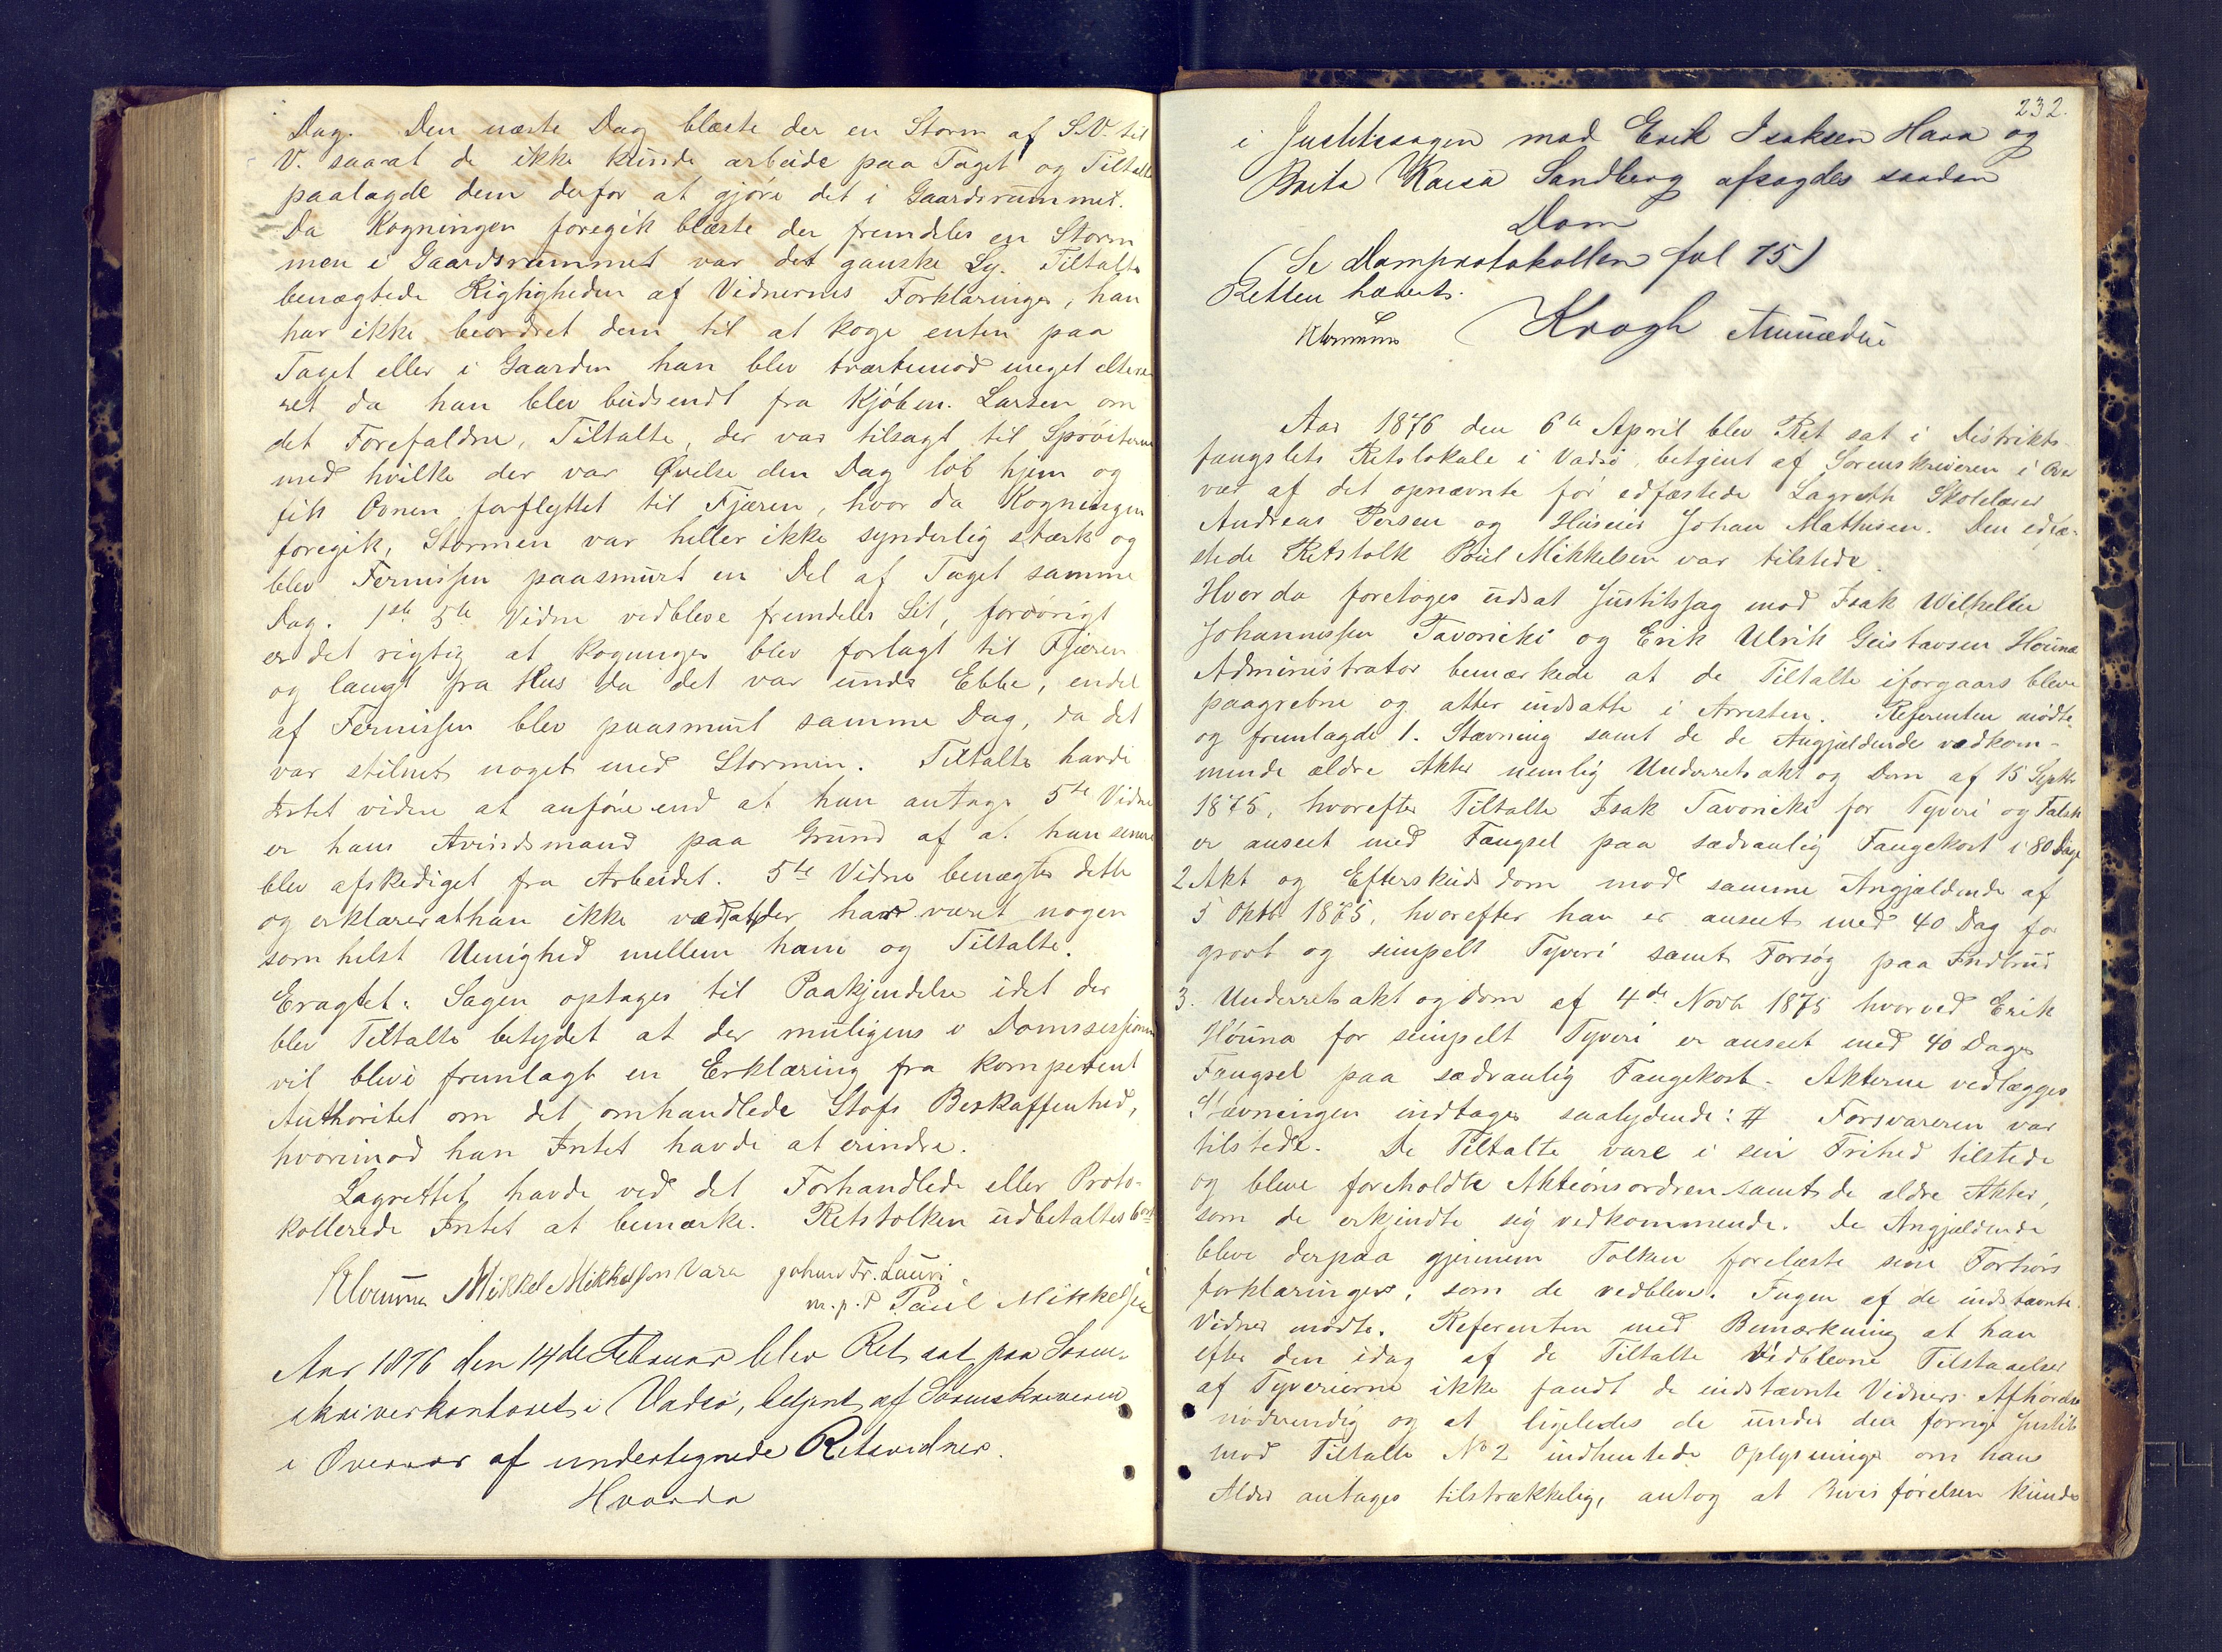 Dag. Den næste Dag blæste der en Storm af S.V. til
V. saaat de ikke kunde arbeide paa Taget og Tiltalte
paalagde dem derfor at gjøre det i Gaardsrummet.
Da Kogningen foregik blæste der fremdeles en Storm
men i Gaardsrummet var det ganske Ly. Tiltalte
benægtede Rigtigheden af Vidnernes Forklaringer, han
har ikke beordret dem til at koge enten paa
Taget eller i Gaarden han blev tvertimod meget altere-
ret da han blev budsendt fra Kjøbm. Larsen om
det Forefaldne, Tiltalte, der var tilsagt til Sprøiterne
med hvilke der var Øvelse den Dag løb hjem og
fik Ovnen forflyttet til Fjæren, hvor da Kogningen
foregik, Stormen var heller ikke synderlig stærk og
blev Fernissen paasmurt en Del af Taget samme
Dag. 1ste 5te Vidne vedbleve fremdeles Sit, forøvrigt
er det rigtig at Kogningen blev forlagt til Fjæren
og langt fra Hus da det var under Ebbe, endel
af Fernissen blev paasmurt samme Dag, da det
var stilnet noget med Stormen. Tiltalte havde
Intet videre at anføre end at han antager 5te Vidne
er hans Avindsmand paa Grund af at han senere
blev afskediget fra Arbeidet. 5te Vidne benægter dette
og erklærer at han ikke ved at der har været nogen
som helst Uenighed mellem ham og Tiltalte.
Eragtet: Sagen optages til Paakjendelse idet der
blev Tiltalte betydet at der muligens i Domssessionen
vil blive fremlagt en Erklæring fra kompetent
Authoritet om det omhandlede Stofs Beskaffenhed,
hvorimod han Intet havde at erindre.
Lagrettet havde ved det Forhandlede eller Proto-
kollerede Intet at bemærke. Retstolken udbetaltes
Mikkel Mikkelsen Vara Johan Fr. Lauri
m. p. P Paul Mikkelsen
Aar 1876 den 14de Februar blev Ret sat paa Soren-
skriverkontoret i Vadsø, betjent af Sorenskriveren
i Overvær af undertegnede Retsvidner.
Hvorda
232.
i Justitssagen mod Erik Isaksen Hara og
Brita Kaisa Sandberg afsagdes saadan
Dom
(Se Domprotokollen fol 75)
Retten hævet.
Krogh
Aar 1876 den 6te April blev Ret sat i Distrikts-
fængslets Retslokale i Vadsø, betjent af Sorenskriveren i Over
vær af det opnævnte før edfæstede Lagrett Skolelærer
Andreas Persen og Huseier Johan Mathisen. Den edfæ-
stede Retstolk Poul Mikkelsen var tilstede.
Hvorda foretoges udsat Justitssag mod Isak Wilhelm
Johannessen Tavoniki og Erik Ulrik Gustavsen Houna
Administrator bemærkede at de Tiltalte iforgaars bleve
paagrebne og atter indsatte i Arresten. Referenten mødte
og fremlagde 1. Stævning samt de de Angjældende vedkom-
mende ældre Akter nemlig Underretsakt og Dom af 15 Septbr
1875, hvorefter Tiltalte Isak Tavoniki for Tyveri og Falsk
er anseet med Fængsel paa sædvanlig Fangekost i 80 Dage
2 Akt og Efterskudsdom mod samme Angjældende af
5 Oktbr 1875, hvorefter han er anseet med 40 Dag for
grovt og simpelt Tyveri samt Forsøg paa Indbrud
3. Underretsakt og dom af 4de Novbr 1875 hvorved Erik
Houna for simpelt Tyveri er anseet med 40 Dages
Fængsel paa sædvanlig Fangekost. Akterne vedlægges
Stævningen indtages saalydende: # Forsvareren var
tilstede. De Tiltalte vare i sin Frihed tilstede
og bleve foreholdte Aktionsordren samt de ældre Akter,
som de erkjendte sig vedkommende. De Angjældende
bleve derpaa gjennem Tolken forelæste sine Forhørs
forklaringer, som de vedbleve. Ingen af de indstævnte
Vidner mødte. Referenten med Bemærkning at han
efter den idag af de Tiltalte vedblevne Tilstaaelser
af Tyverierne ikke fandt de indstævnte Vidners Afhørelse
nødvendig og at ligeledes de under den forrige Justits
mod Tiltalte No 2 indhentede Oplysninger om hans
Alder antages tilstrækkelig, antog at Bevisførelsen kunde